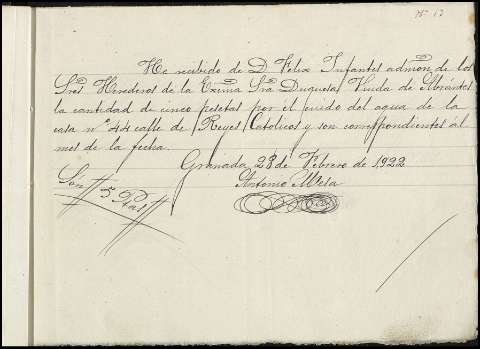 Nº 12
He recibido de D. Felix Infantes admon. de los
Sres. Herederos de la Excma Sra Duquesa Viuda de Abrántes
la cantidad de cinco pesetas por el cuido del agua de la
casa nº 44 calle de Reyes Catolicos y son correspondientes al
mes de la fecha.
Granada 28 de Febrero de 1,922
Antonio Mesa
Son 5 Ptas